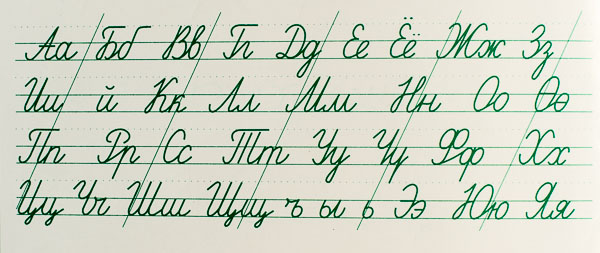 Аа Бб Вв Гг Дд Ее Ёё Жж Зз
Ии й Кк Лл Мм Нн Оо Өө
Пп Рр Сс Тт Уу Үү Фф Хх
Цц Чч Шш Щщ ъ ы ь Ээ Юю Яя